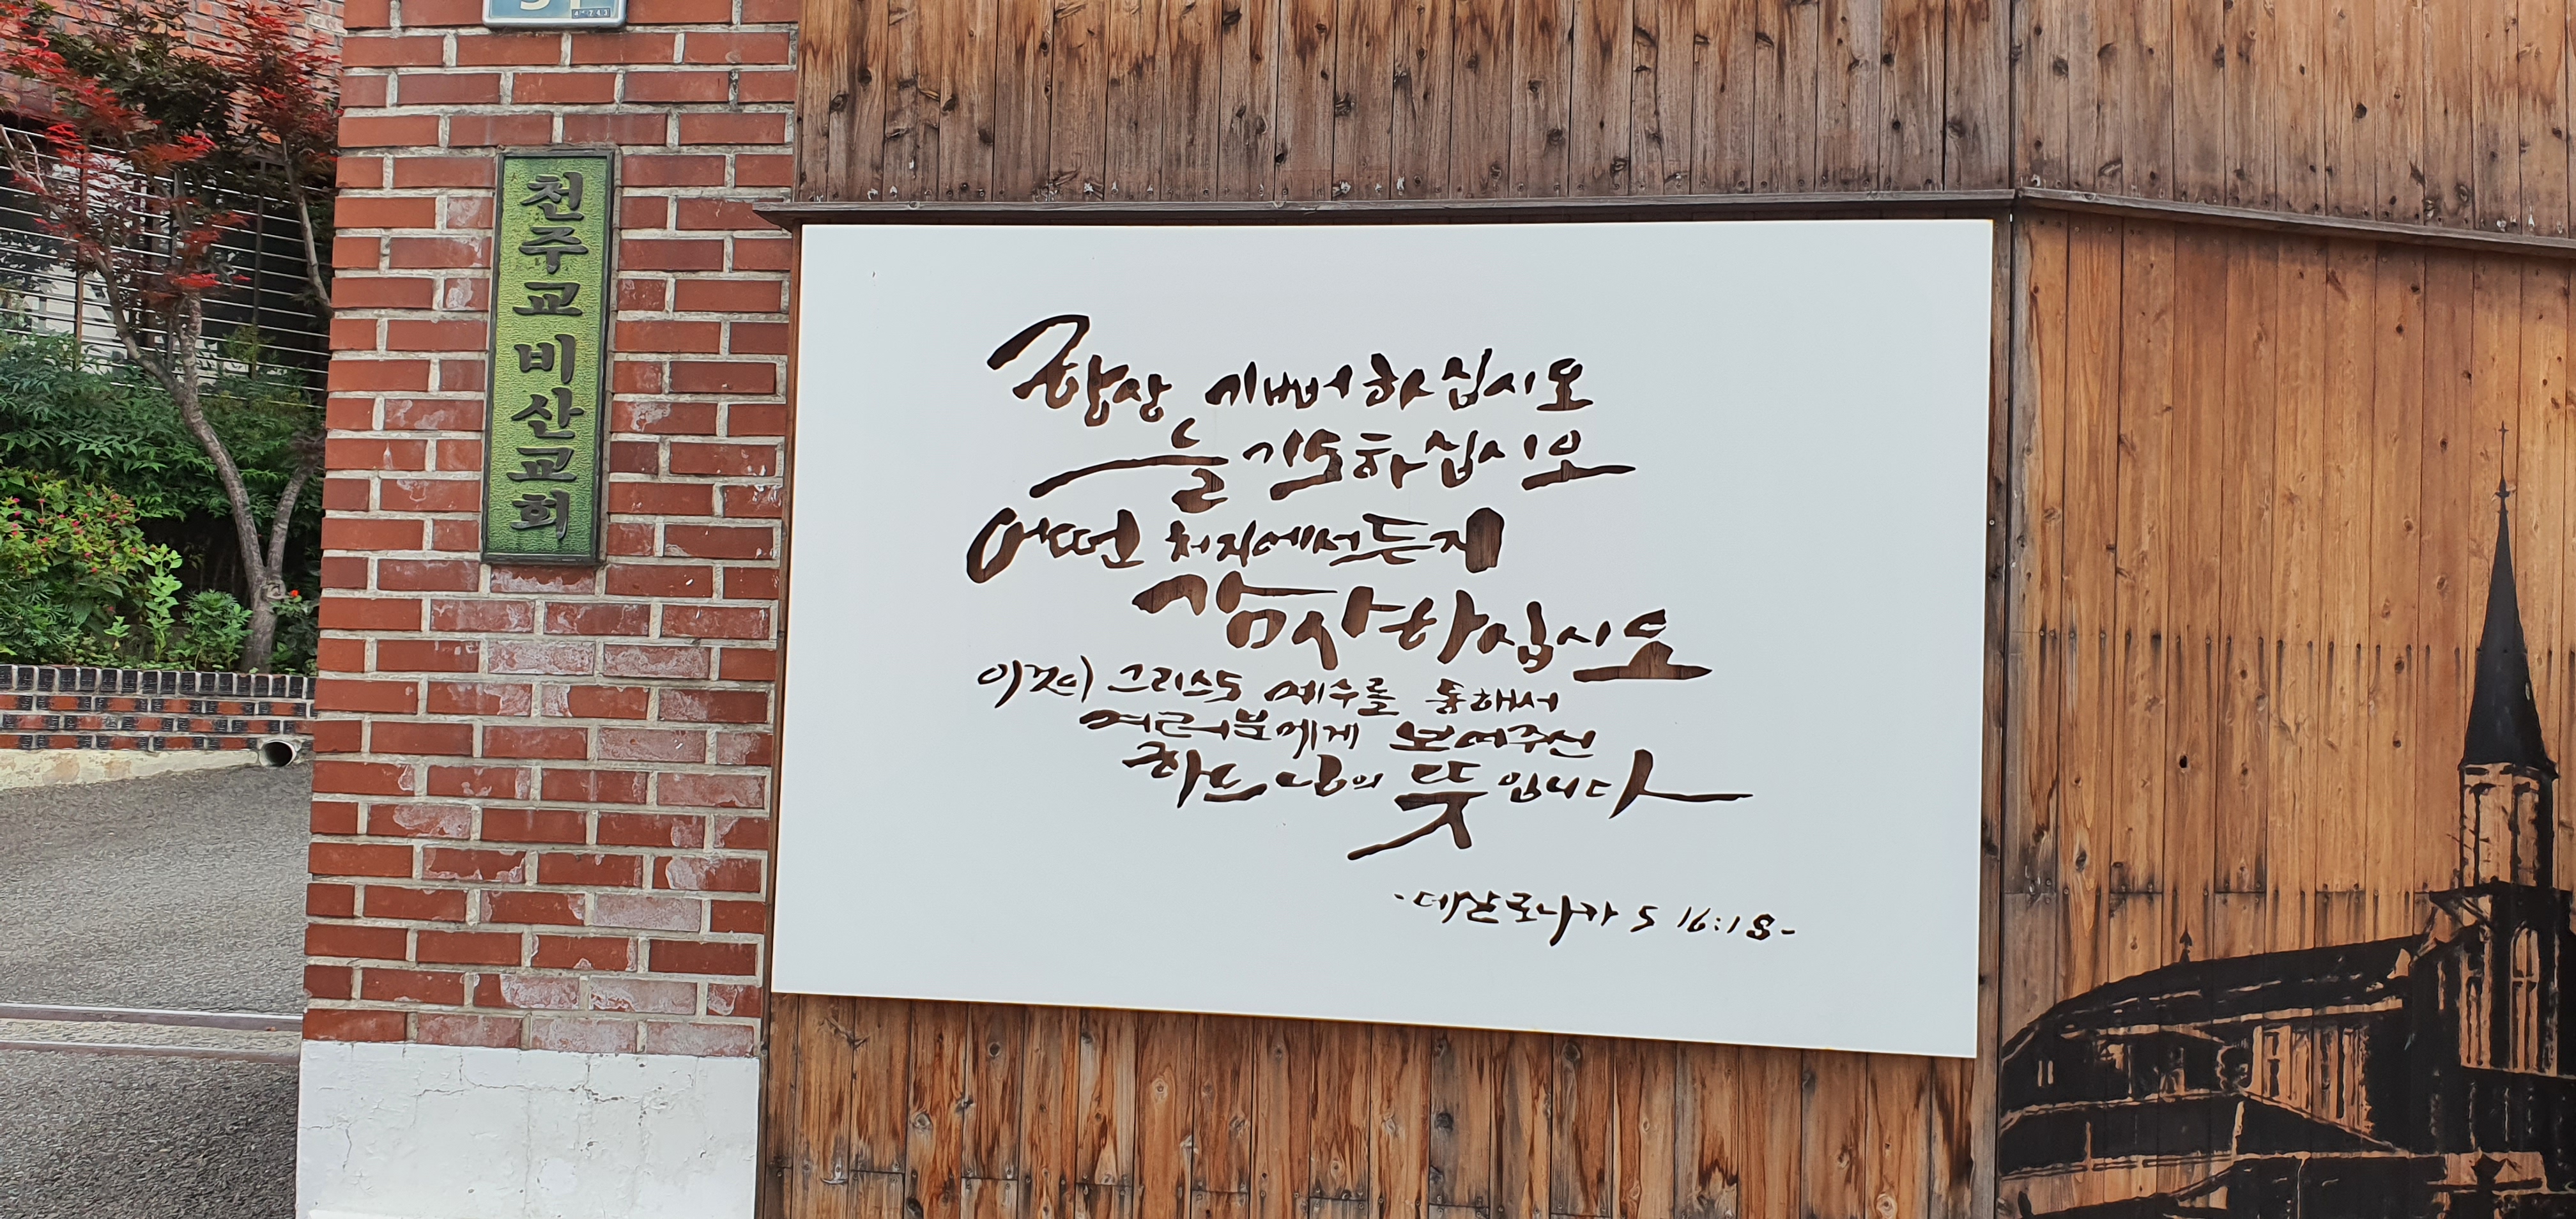 천주교 비산교회
항상 기뻐하십시오
늘 기도하십시오
어떤 처지에서든지
감사하십시오
이것이 그리스도 예수를 통해서
여러분에게 보여주신
하느님의 뜻입니다
-데살로니카 5 16:18-